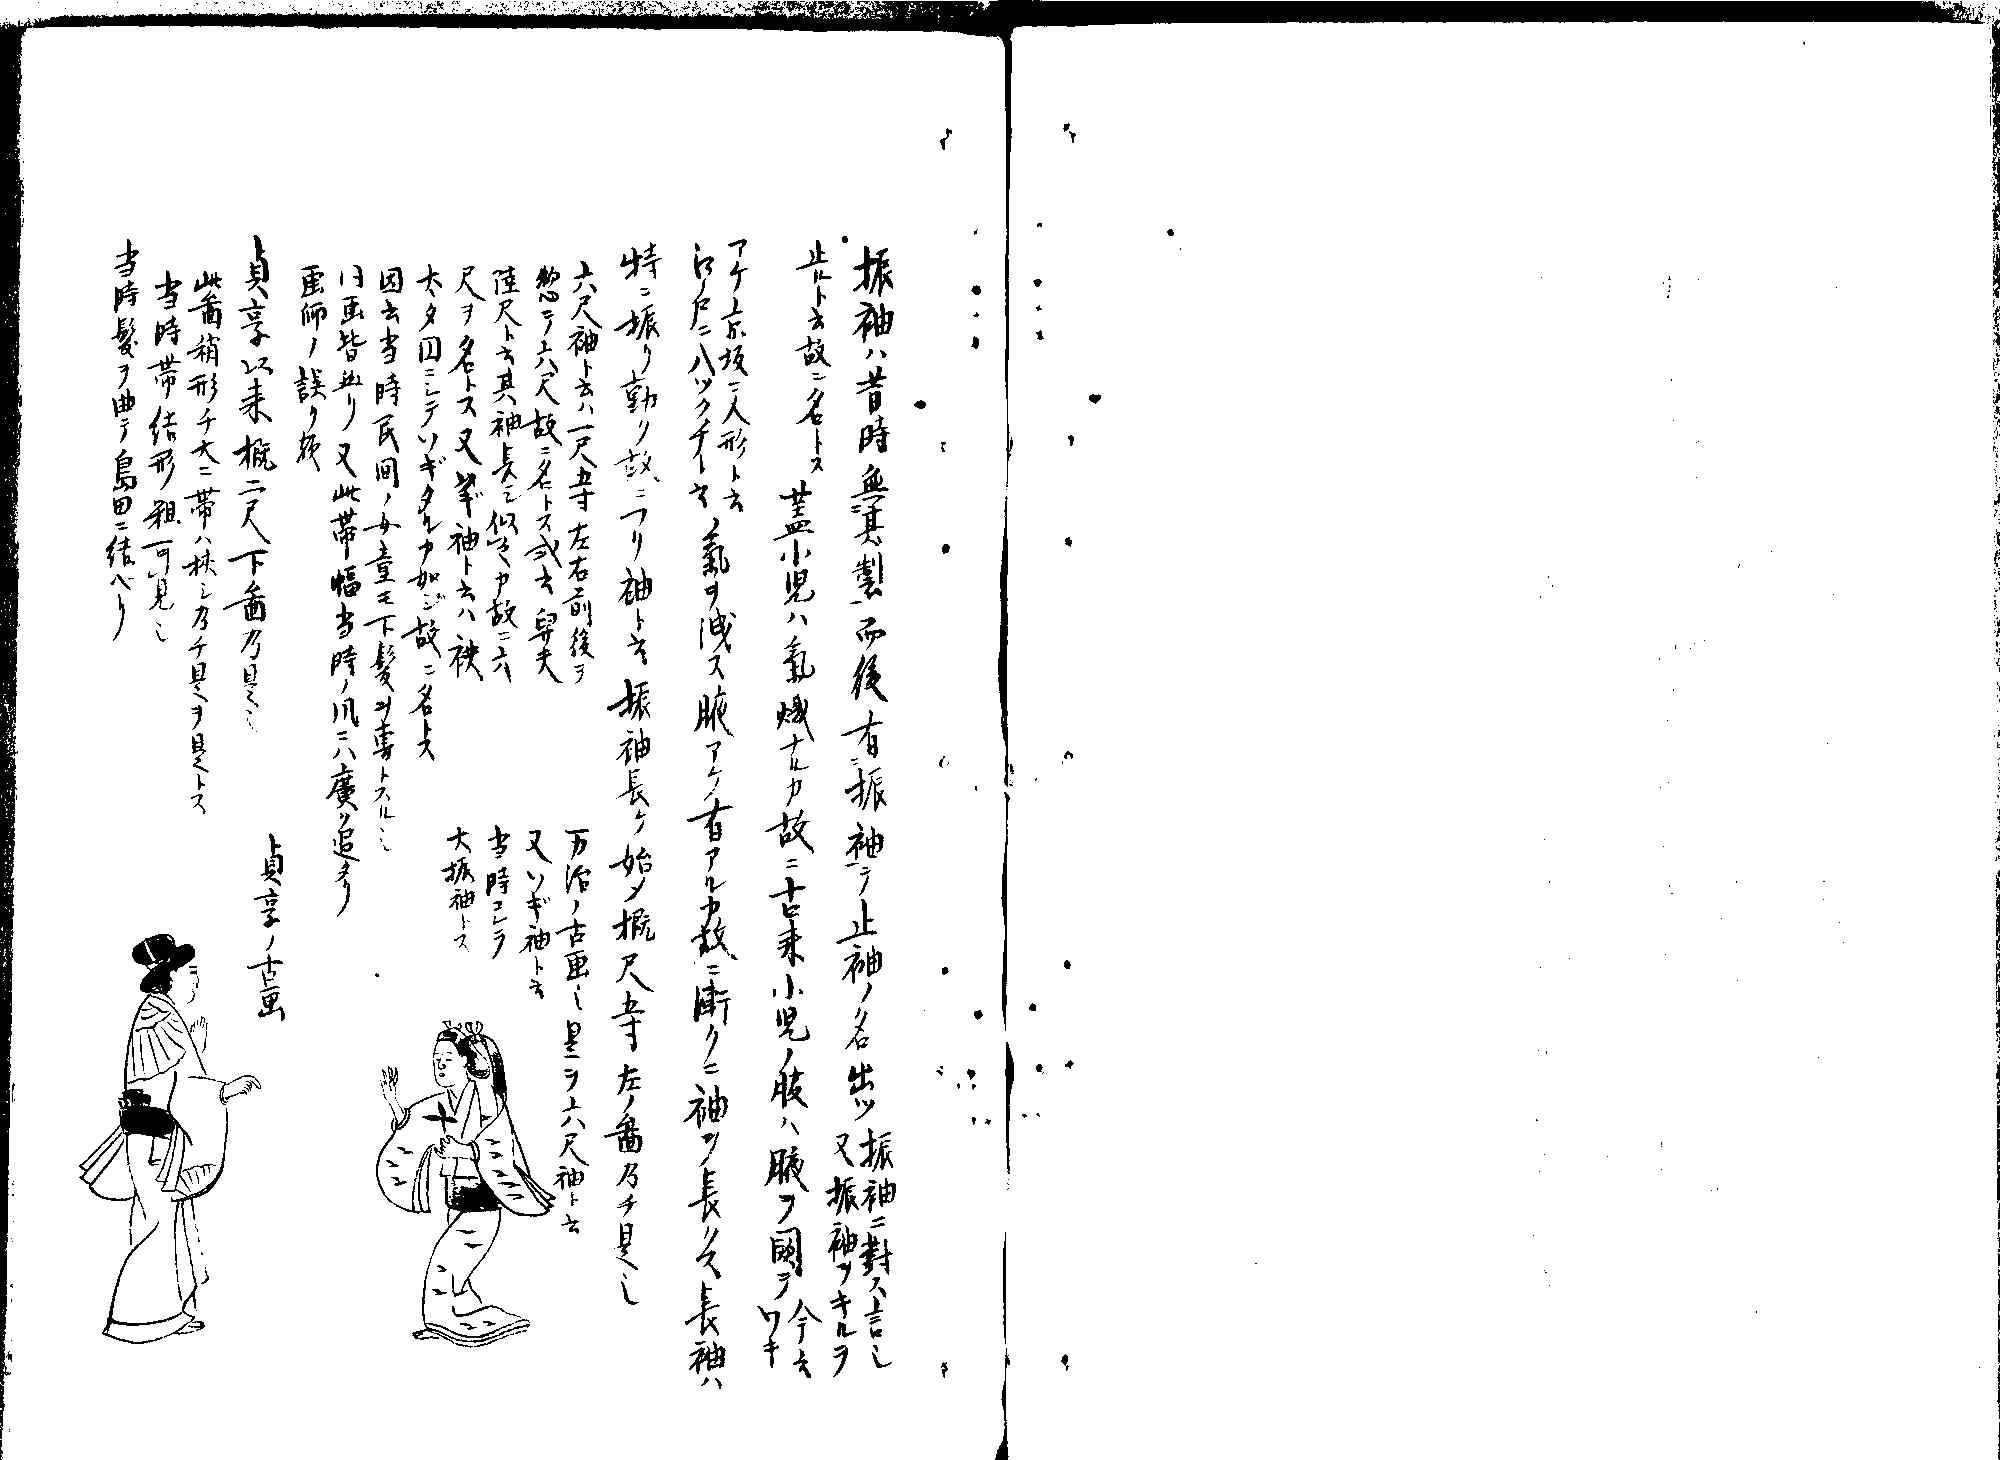 振袖ハ昔時無其製而後有振袖テ止袖ノ名出ツ
振袖ニ對ス言也
又振袖ヲキルヲ
止ルト云故ニ名トス
蓋小児ハ氣熾ナルカ故ニ古来小児ノ服ハ腋ヲ開テ
今云
ワキ
アケ京坂ニ人形ト云
江戸ニ八ツクチト云
ノ氣ヲ洩ス腋アケ有アルカ故ニ漸クニ袖ヲ長クス長袖ハ
特ニ振リ動ク故ニフリ袖ト云振袖長ケ始メ概尺五寸左ノ啚乃チ是也
六尺袖ト云ハ一尺五寸左右前後ヲ
惣テ六尺故ニ名トス或云舁夫
陸尺ト云其袖長ニ似タルカ故ニ六
尺ヲ名トス又ソギ袖ト云ハ袂
太タ円ニシテソギタルカ如シ故ニ名トス
因云当時民間ノ女童モ下髪ヲ専トスル也
旧画皆然リ又此帯幅当時ノ風ニハ廣ク追タリ
画師ノ誤リ歟
万治ノ古画也是ヲ六尺袖ト云
又ソギ袖ト云
当時コレヲ
大振袖トス
貞享以来概二尺下啚乃是也
此啚稍形チ大ニ帯ハ挟シ乃チ是ヲ是トス
当時帯結形粗可見也
当時髪ヲ曲テ島田ニ結ヘリ
貞享ノ古画